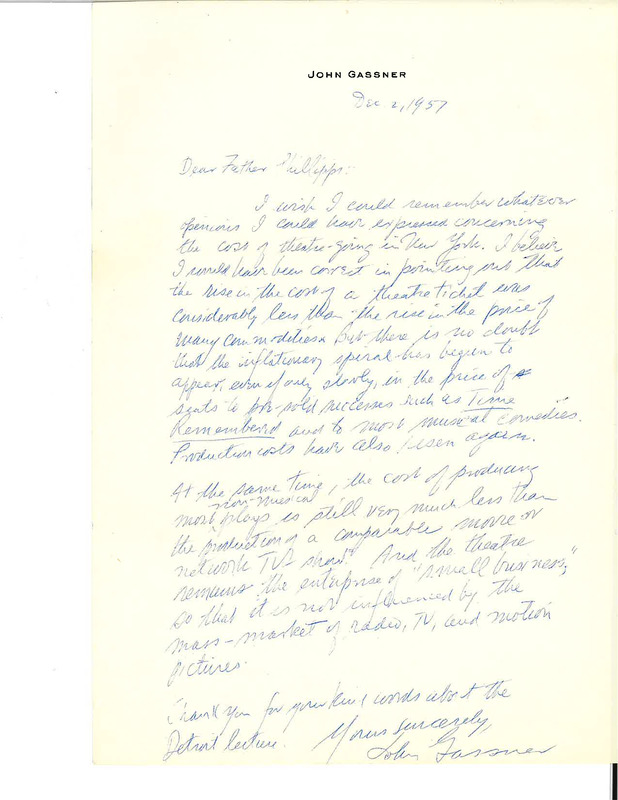 JOHN GASSNER
Dec. 2, 1957
Dear Father Phillipps:
I wish I could remember whatever
opinions I could have expressed concerning
the cost of theatre-going in New York. I believe
I would have been correct in pointing out that
the rise in the cost of a theatre ticket was
considerably less than the rise in the price of
many commodities. But there is no doubt
that the inflationary spiral has begun to
appear, even if only slowly, in the price of
seats to pre-sold successes such as Time
Remembered and to most musical comedies.
Production costs have also risen again.
At the same time, the cost of producing
non-musical
most plays is still very much less than
the production of a comparable movie or
network TV "show." And the theatre
remains the enterprise of "small business,"
so that it is not influenced by the
mass-market of radio, TV, and motion
pictures.
Thank you for your kind words about the
Detroit lecture. Yours sincerely,
John Gassner